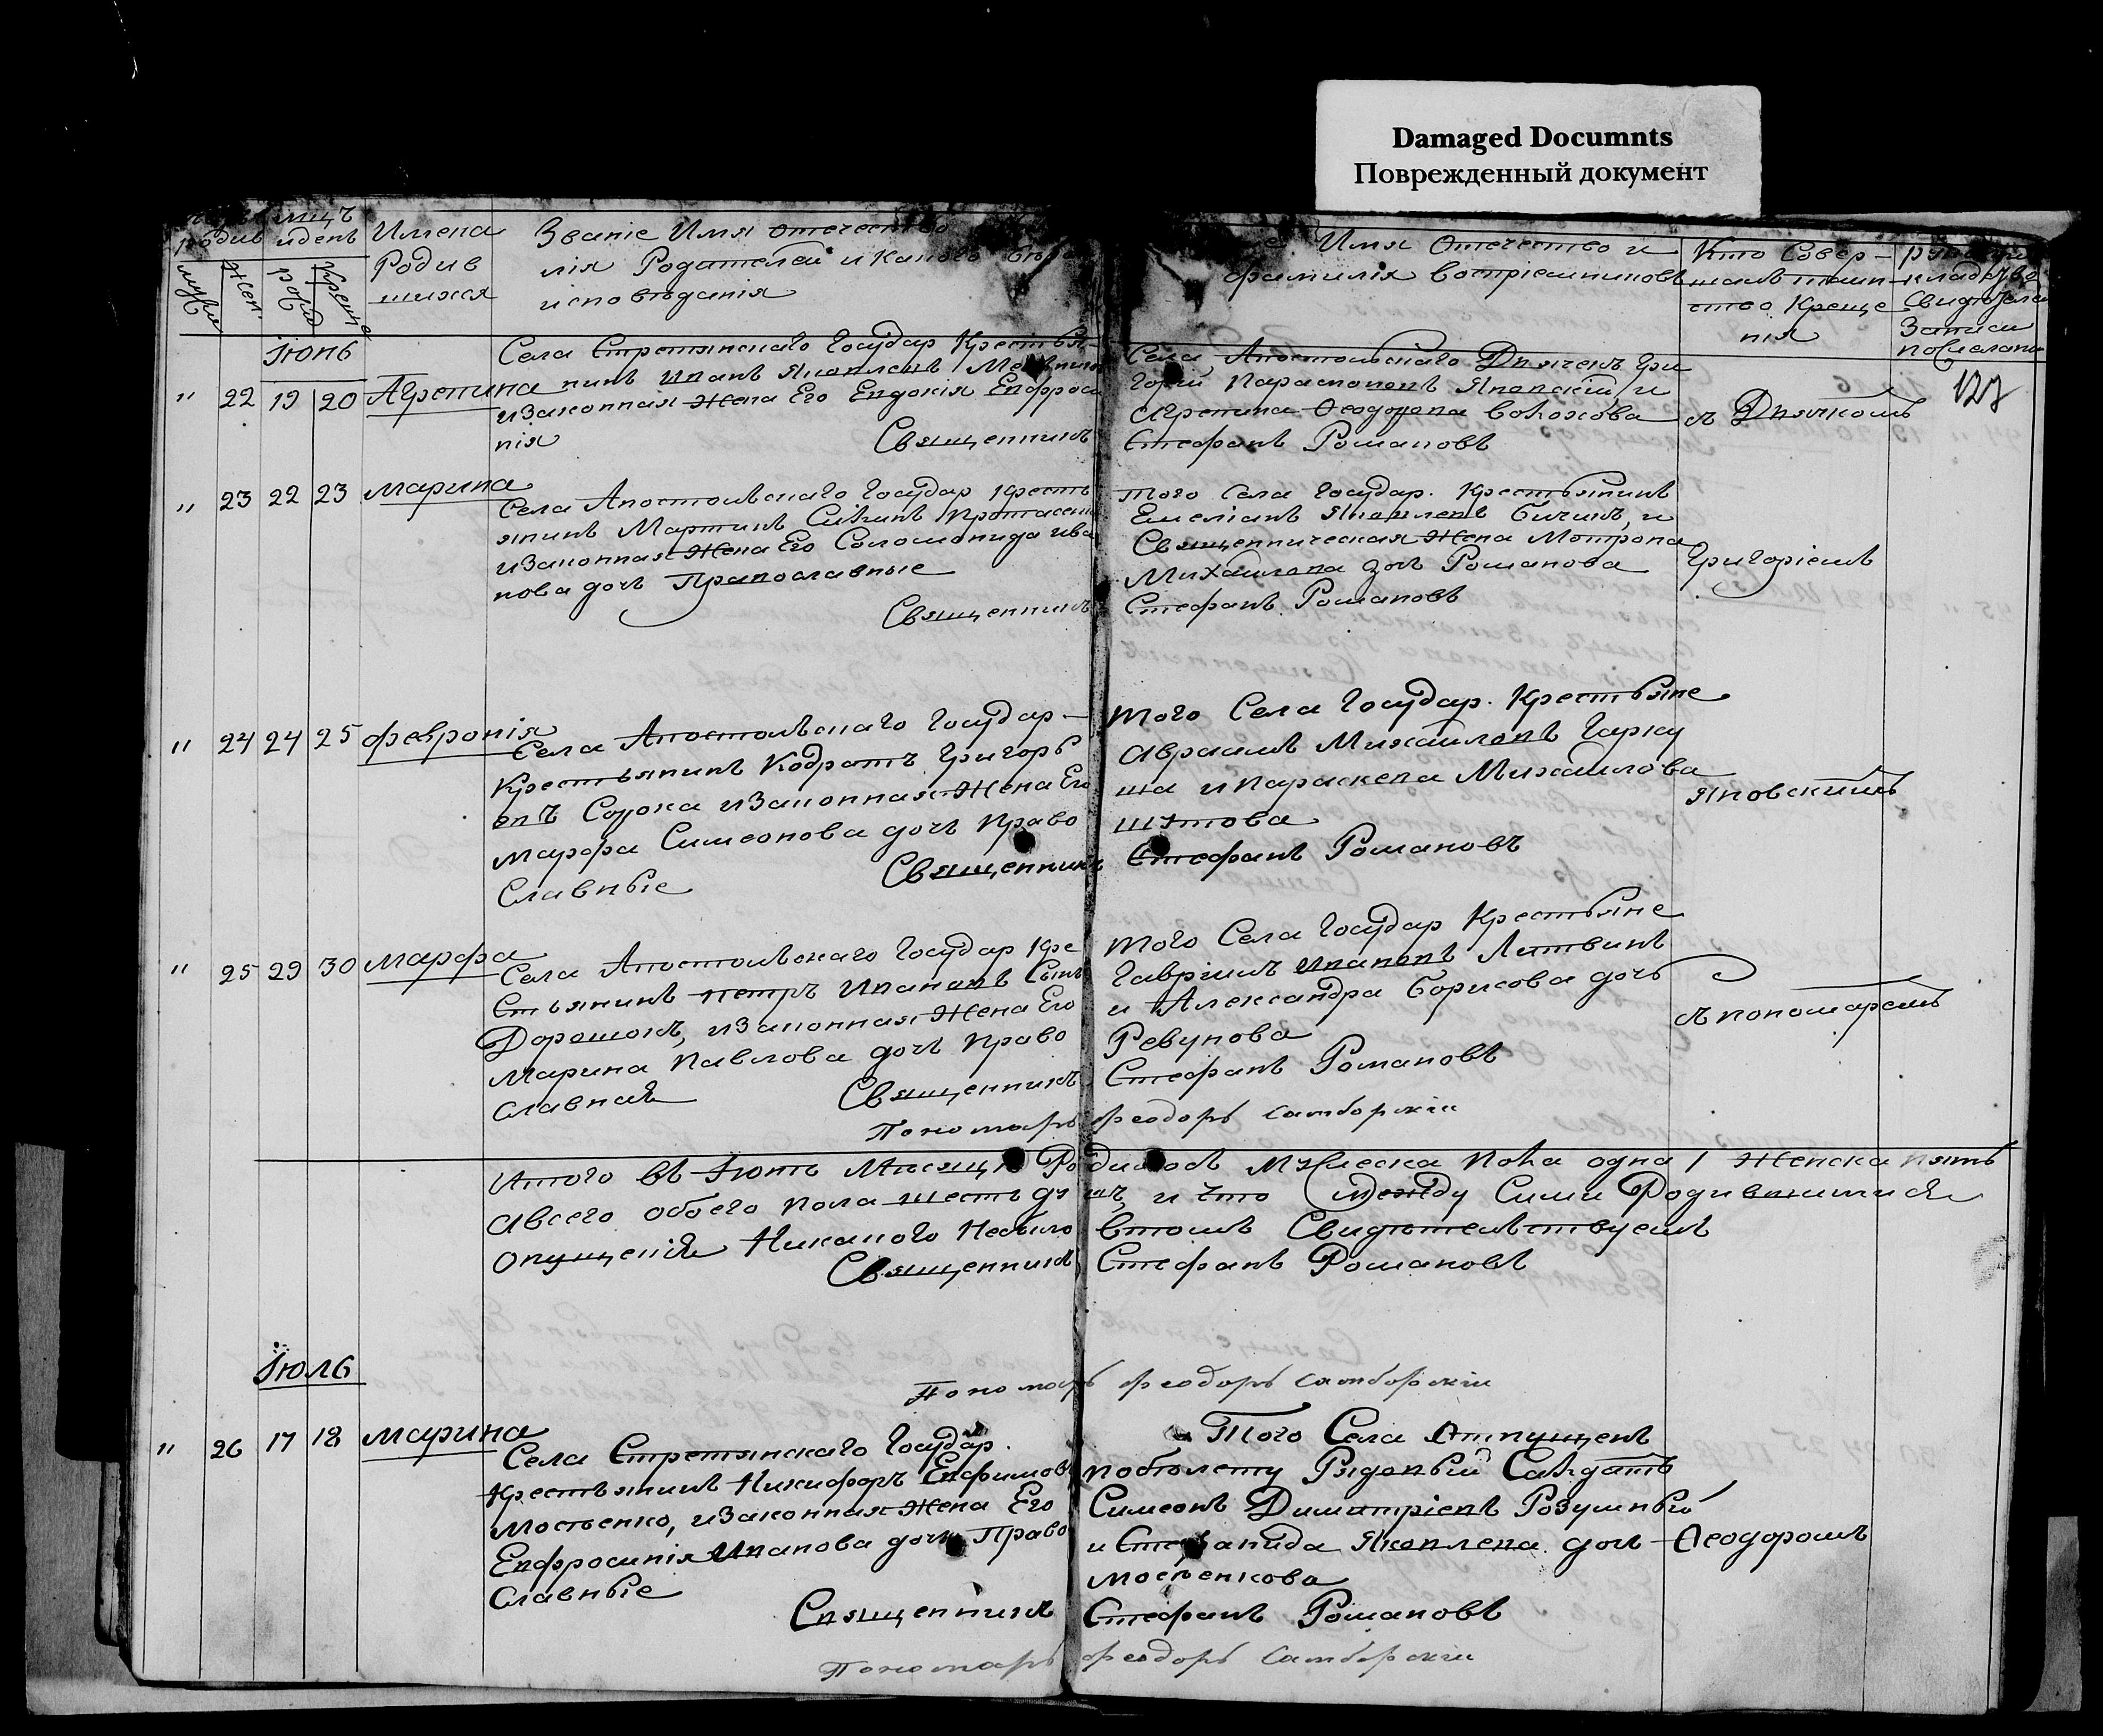 Damaged Documnts
Поврежденный документ
родив
идень
Имена
Родив
шихся
Званіе Имя отечество
лія Родителей и какова
исповѣданія
Имя Отечество и
фамилія Воспріемниковъ
Кто Совер-
шалъ таин-
ство Креще
нія
Записи
по желанію
муж
жен.
рожд
креще
Іюнь
127
" 22 19 20 Агрепина
Села Стретянскаго Государ Крестья-
нинъ Иванъ Яковлевъ
и законная Жена Его Евдокія Евфроси
нія
Священникъ
Села Апостольскаго Дьячекъ Гри
горій Яновскій, и
Агрепина Феодорова
Стефанъ Романовъ
ъ Дьячкомъ
" 23 22 23 Марина
Села Апостольскаго Государ Кресть
янинъ Мартинъ
и законная Жена Его Соломонида Ива
нова дочь Православные
Священникъ
того Села Государ. Крестьянинъ
Емеліанъ Яковлевъ Бичикъ, и
Священническая Жена Мотрона
Михайлова дочь Романова
Стефанъ Романовъ
Григоріемъ
" 24 24 25 Февронія
Села Апостольскаго Государ-
Крестьянинъ Кодратъ Григорь
евъ Сорока и законная Жена Его
Марфа Симеонова дочь Право
Славные
Священникъ
того Села Государ. Крестьяне
Авраамъ Михайловъ Гарку
ша и Параскева Михайлова
Стефанъ Романовъ
Яновскимъ
" 25 29 30 Марфа
Села Апостольскаго Государ Кре
стьянинъ Петръ Ивановъ Сынъ
Дорошокъ, и законная Жена Его
Марина Павлова дочь Право
славная
Священникъ
того Села Государ Крестьяне
Гавріилъ Ивановъ Литвинъ
и Александра Борисова дочь
Ревунова
Стефанъ Романовъ
ъ пономаремъ
Пономарь Феодоръ Самборскій
Итого въ Іюнь Мѣсяцѣ Родилось Мужеска Пола одна 1 Женска пять
Авсего обоего пола шесть душъ, и что между Сими Родившимися
опущенія Никакого Небыло втомъ Свидѣтельствуемъ
Священникъ Стефанъ Романовъ
Іюль
Пономарь Феодоръ Самборскій
" 26 17 18 Марина
Села Стретянскаго Государ.
Крестьянинъ Никифоръ Евфимовъ
Мосьенко, и законная Жена Его
Евфросинія Иванова дочь Право
Славные
Священникъ
Того Села Отпущенъ
побилету Рядовый Салдатъ
Симеонъ Димитріевъ Розумный
и Стефанида Яковлева дочь
Мосьенкова
Стефанъ Романовъ
Феодоромъ
Пономарь Феодоръ Самборскій